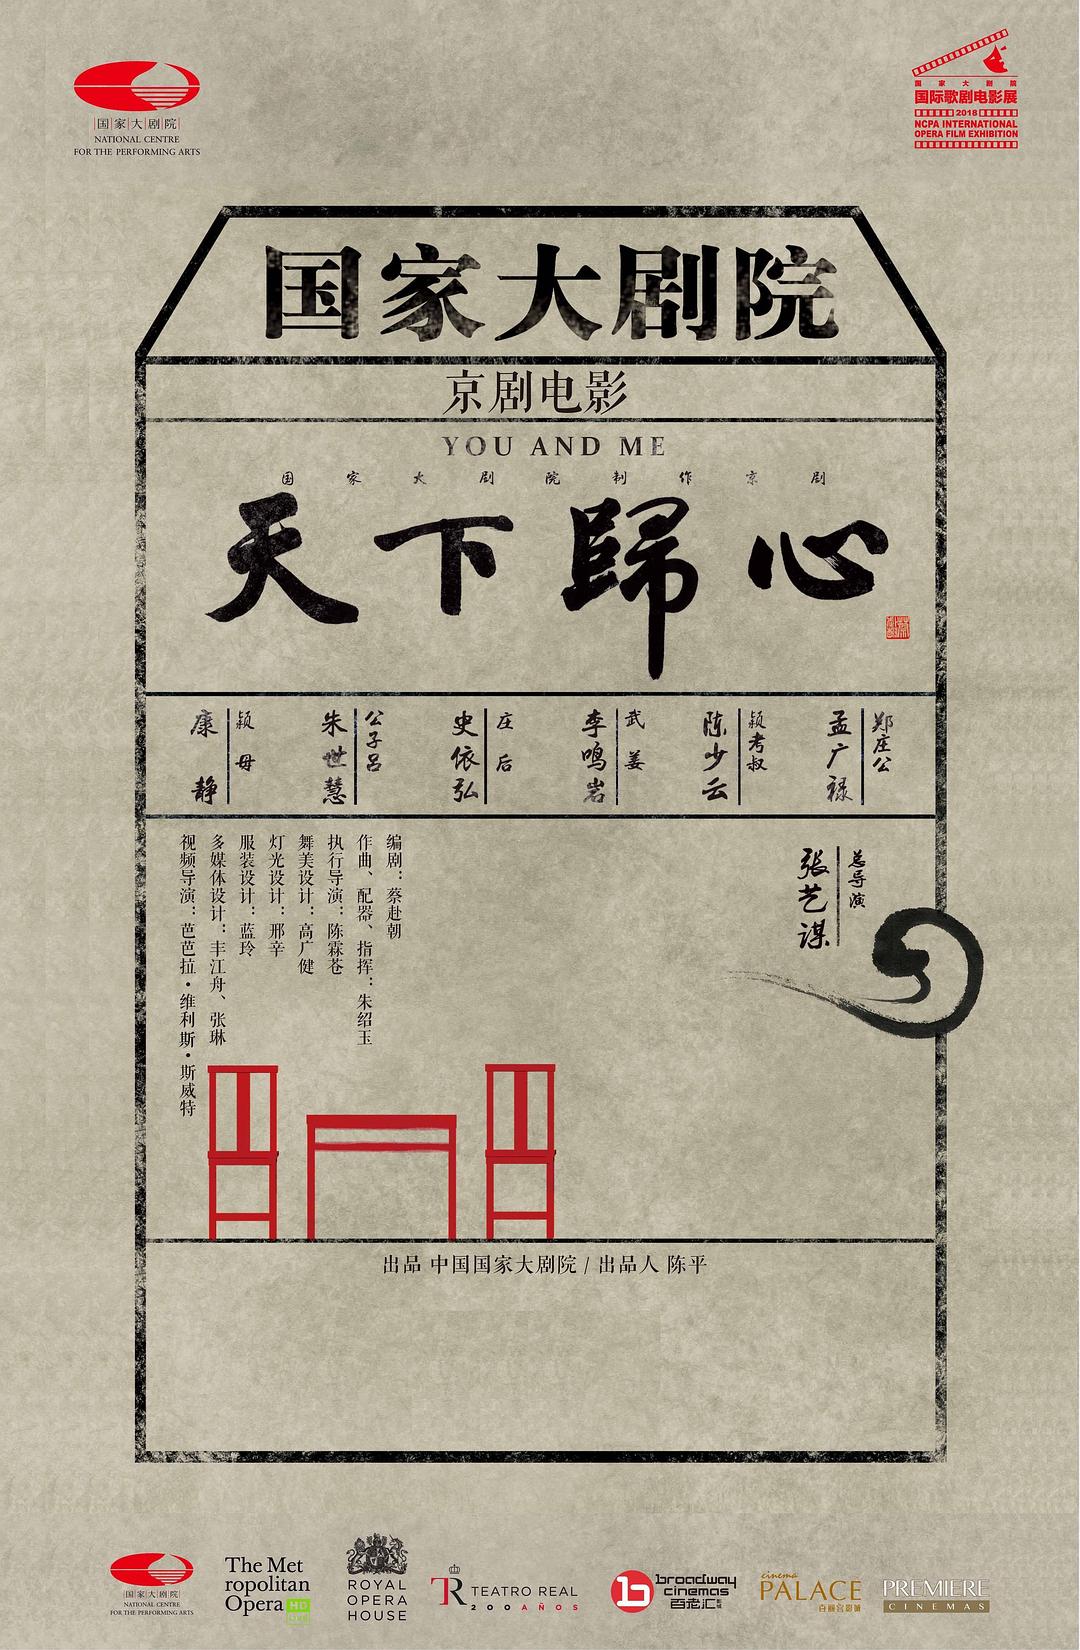 国家大剧院
NATIONAL CENTRE
FOR THE PERFORMING ARTS
国家大剧院
国际歌剧电影展
2018
NCPA INTERNATIONAL
OPERA FILM EXHIBITION
国家大剧院
京剧电影
YOU AND ME
国家大剧院制作京剧
天下歸心
郑庄公
孟广禄
颍考叔
陈少云
武姜
李鸣岩
庄后
史依弘
公子吕
朱世慧
颍母
康静
总导演
张艺谋
编剧：蔡赴朝
作曲、配器、指挥：朱绍玉
执行导演：陈霖苍
舞美设计：高广健
灯光设计：邢辛
服装设计：蓝玲
多媒体设计：丰江舟、张琳
视频导演：芭芭拉·维利斯·斯威特
出品 中国国家大剧院 / 出品人 陈平
国家大剧院
NATIONAL CENTRE
FOR THE PERFORMING ARTS
The Met
ropolitan
Opera HD
ROYAL
OPERA
HOUSE
TR TEATRO REAL
200 AÑOS
b broadway
cinemas
百老汇影城
cinema
PALACE
百丽宫影城
PREMIERE
CINEMAS